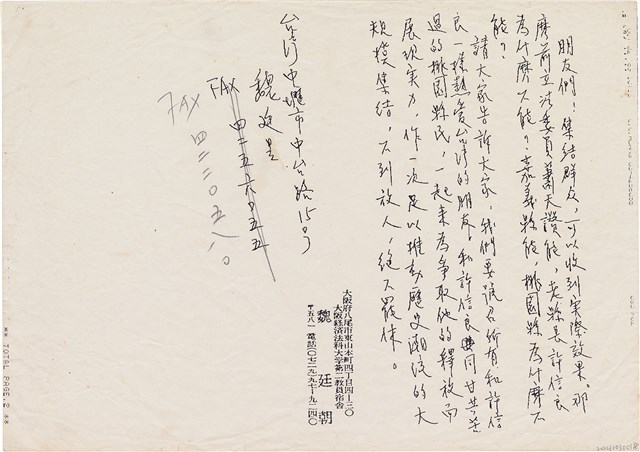 朋友們！集結群众，可以收到实際效果。那
麼前立法委員蕭天讚能，老縣長許信良
為什麼不能？嘉義縣能，桃園縣為什麼不
能？
請大家告訴大家，我們要號召所有和許信
良一樣熱愛台灣的朋友，和許信良共同甘共苦
過的桃園縣民，一起來為爭取他的釋放而
展现实力，作一次足以推动歷史潮流的大
規模集結，不到放人，絕不罷休。
台湾中壢市中台路15号
魏廷昱
FAX 四二五六九五五
FAX 四二二〇五八〇
大阪府八尾市東山本町四丁目四-三〇
大阪経済法科大学第二教員宿舎
魏廷朝
〒五八一 電話(〇七二九)九七-九二四〇
TOTAL PAGE.2